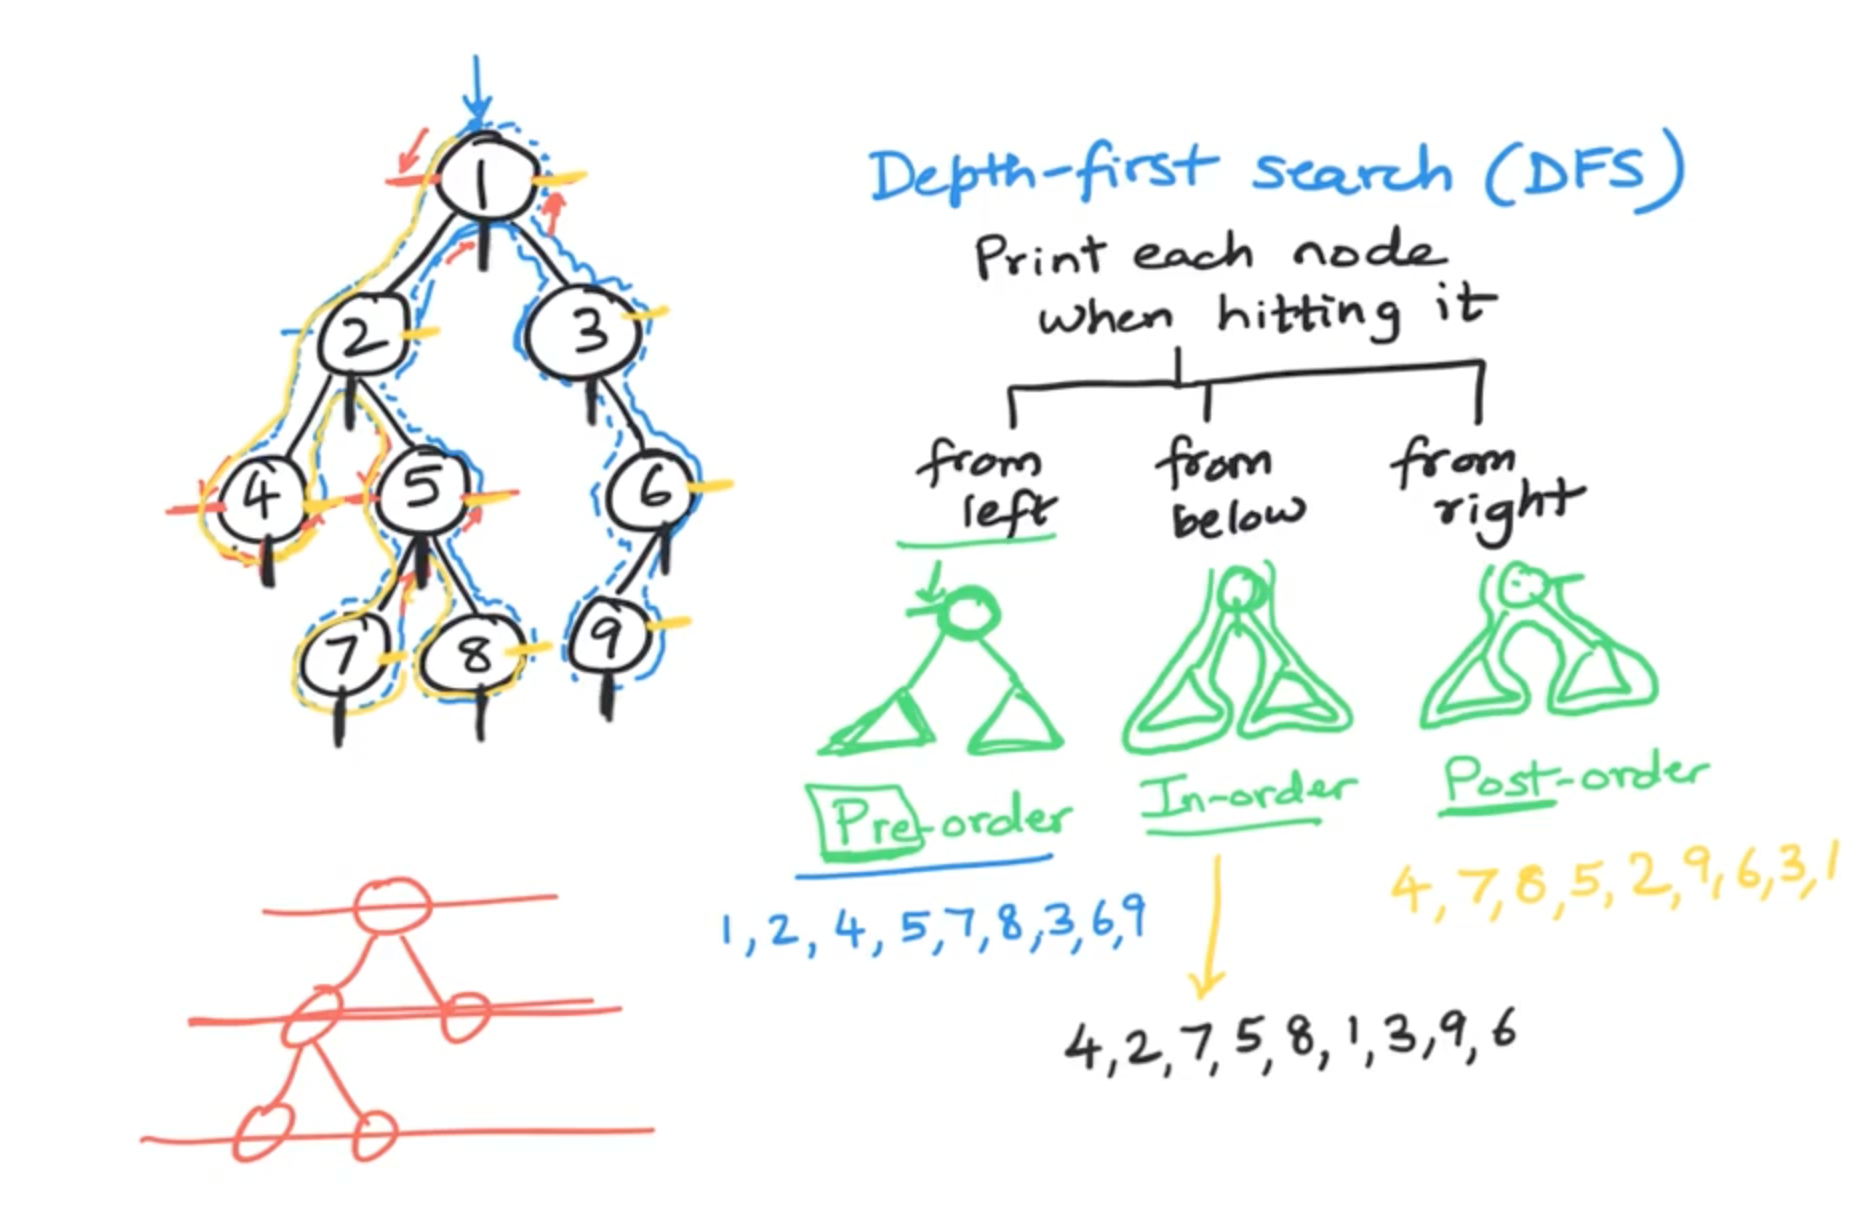 1
2
3
4
5
6
7
8
9
Depth-first search (DFS)
Print each node
when hitting it
from
left
from
below
from
right
Pre-order
In-order
Post-order
1, 2, 4, 5, 7, 8, 3, 6, 9
4, 7, 8, 5, 2, 9, 6, 3, 1
4, 2, 7, 5, 8, 1, 3, 9, 6